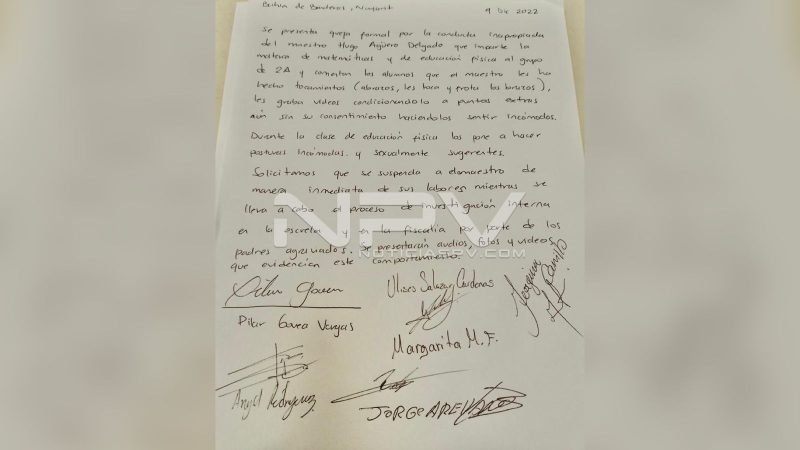 Bahia de Banderas, Nayarit 9 Dic 2022
Se presenta queja formal por la conducta inapropiada
del maestro Hugo Agüero Delgado que imparte la
materia de matemáticas y de educación física al grupo
de 2A y comentan los alumnos que el maestro les ha
hecho tocamientos (abrazos, les toca y frota los brazos),
les graba videos condicionandolo a puntos extras
aún sin su consentimiento haciendolos sentir incómodos.
Durante la clase de educación física los pone a hacer
posturas incómodas y sexualmente sugerentes.
Solicitamos que se suspenda a el maestro de
manera inmediata de sus labores mientras se
lleva a cabo el proceso de investigación interna
en la escuela y en la fiscalia por parte de los
padres agraviados. Se presentarán audios, fotos y videos
que evidencien este comportamiento.
NPV
NOTICIASPV.COM
Ulises Salazar Cardenas
Pilar Govea Vargas
Margarita M.F.
Angel Rodriguez
JORGE